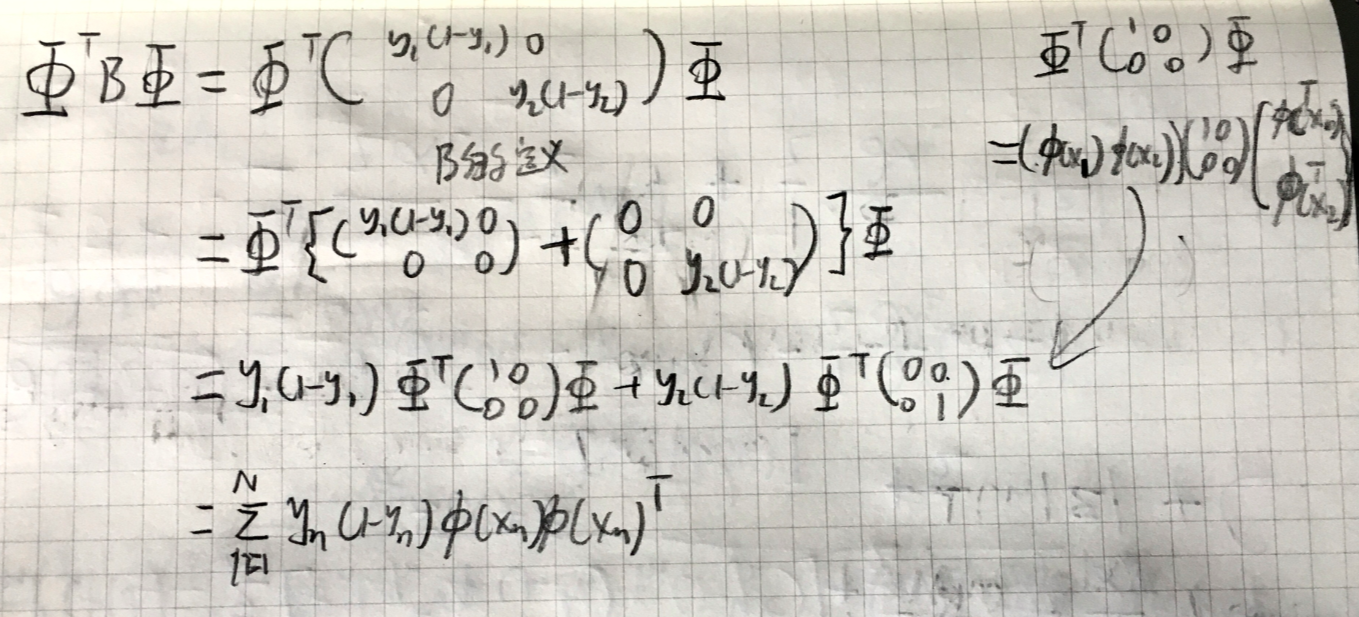 Φᵀ B Φ = Φᵀ ( y₁(1-y₁) 0 ; 0 y₂(1-y₂) ) Φ
B的定义
= Φᵀ { ( y₁(1-y₁) 0 ; 0 0 ) + ( 0 0 ; 0 y₂(1-y₂) ) } Φ
= y₁(1-y₁) Φᵀ ( 1 0 ; 0 0 ) Φ + y₂(1-y₂) Φᵀ ( 0 0 ; 0 1 ) Φ
= Σ_{i=1}^{N} yₙ(1-yₙ) φ(xₙ) φ(xₙ)ᵀ
Φᵀ ( 1 0 ; 0 0 ) Φ
= ( φ(x₁) φ(x₂) ) ( 1 0 ; 0 0 ) ( φᵀ(x₁) ; φᵀ(x₂) )